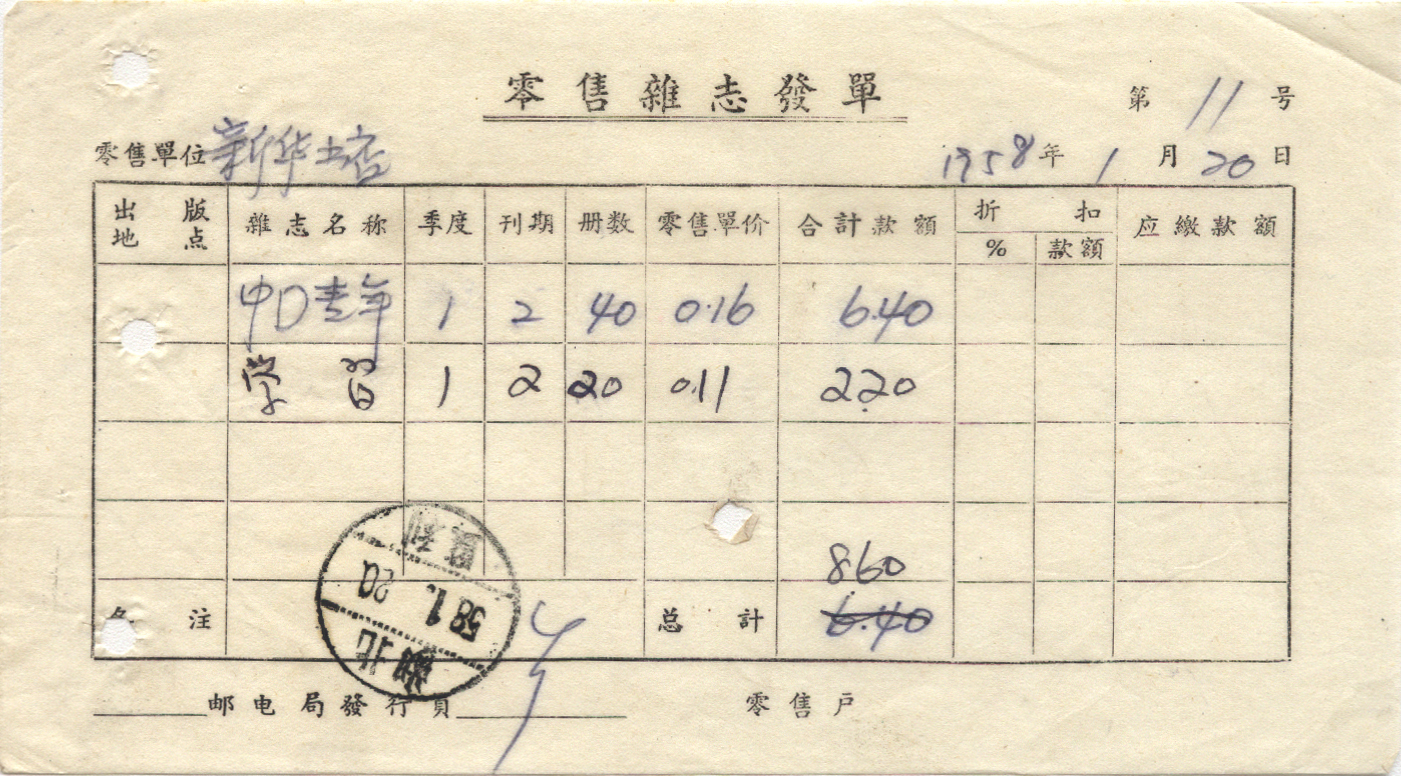 零售雜志發單
第 11 号
零售單位 新华书店 1958年 1月 20日
出版地点 雜志名称 季度 刊期 册数 零售單价 合計款額 折扣 % 款額 应繳款額
中口青年 1 2 40 0.16 6.40
学習 1 2 20 0.11 2.20
8.60
备注 总計 6.40
58.1.20
邮电局發行員 零售戶